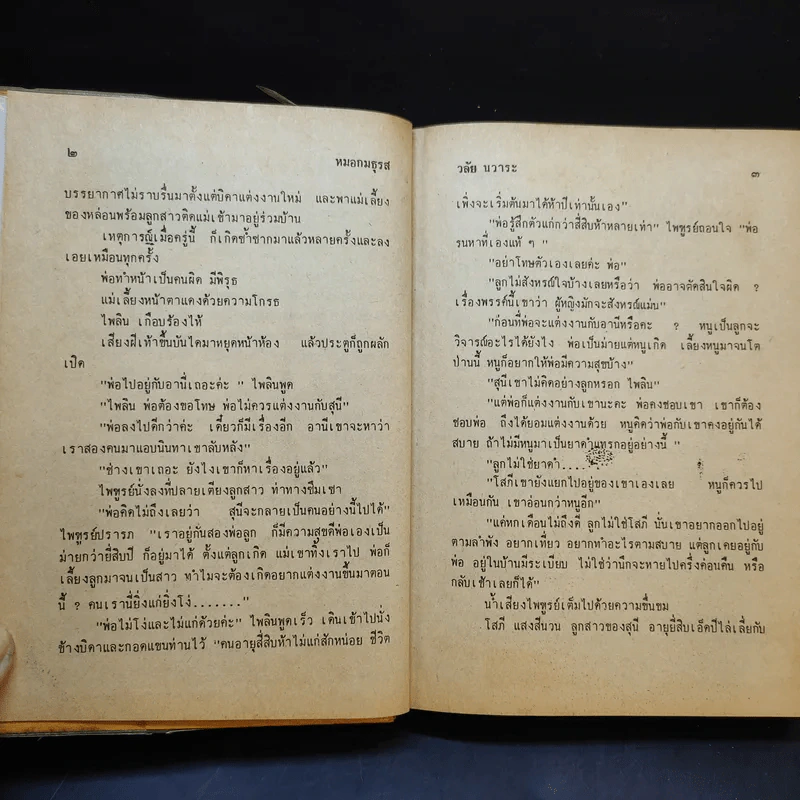 ๒
หมอกมธุรส
บรรยากาศไม่ราบรื่นมาตั้งแต่บิดาแต่งงานใหม่ และพาแม่เลี้ยง
ของหล่อนพร้อมลูกสาวติดแม่เข้ามาอยู่ร่วมบ้าน
เหตุการณ์เมื่อครู่นี้ ก็เกิดซ้ำซากมาแล้วหลายครั้งและลง
เอยเหมือนทุกครั้ง
พ่อทำหน้าเป็นคนผิด มีพิรุธ
แม่เลี้ยงหน้าตาแดงด้วยความโกรธ
ไพลิน เกือบร้องไห้
เสียงฝีเท้าขึ้นบันไดมาหยุดหน้าห้อง แล้วประตูก็ถูกผลัก
เปิด
"พ่อไปอยู่กับอานี่เถอะค่ะ " ไพลินพูด
"ไพลิน พ่อต้องขอโทษ พ่อไม่ควรแต่งงานกับสุนี"
"พ่อลงไปดีกว่าค่ะ เดี๋ยวก็มีเรื่องอีก อานี่เขาจะหาว่า
เราสองคนมาแอบนินทาเขาลับหลัง"
"ช่างเขาเถอะ ยังไงเขาก็หาเรื่องอยู่แล้ว"
ไพฑูรย์นั่งลงที่ปลายเตียงลูกสาว ท่าทางซึมเซา
"พ่อคิดไม่ถึงเลยว่า สุนีจะกลายเป็นคนอย่างนี้ไปได้"
ไพฑูรย์ปรารภ "เราอยู่กันสองพ่อลูก ก็มีความสุขดีพ่อเองเป็น
ม่ายกว่ายี่สิบปี ก็อยู่มาได้ ตั้งแต่ลูกเกิด แม่เขาทิ้งเราไป พ่อก็
เลี้ยงลูกมาจนเป็นสาว ทำไมจะต้องเกิดอยากแต่งงานขึ้นมาตอน
นี้ ? คนเรานี่ยิ่งแก่ยิ่งโง่......."
"พ่อไม่โง่และไม่แก่ด้วยค่ะ" ไพลินพูดเร็ว เดินเข้าไปนั่ง
ข้างบิดาและกอดแขนท่านไว้ "คนอายุสี่สิบห้าไม่แก่สักหน่อย ชีวิต
วลัย นวาระ
๓
เพิ่งจะเริ่มต้นมาได้ห้าปีเท่านั้นเอง"
"พ่อรู้สึกตัวแก่กว่าสี่สิบห้าหลายเท่า" ไพฑูรย์ถอนใจ "พ่อ
รนหาที่เองแท้ ๆ "
"อย่าโทษตัวเองเลยค่ะ พ่อ"
"ลูกไม่สังหรณ์ใจบ้างเลยหรือว่า พ่ออาจตัดสินใจผิด ?
เรื่องพรรค์นี้เขาว่า ผู้หญิงมักจะสังหรณ์แม่น"
"ก่อนที่พ่อจะแต่งงานกับอานีหรือคะ ? หนูเป็นลูกจะ
วิจารณ์อะไรได้ยังไง พ่อเป็นม่ายแต่หนูเกิด เลี้ยงหนูมาจนโต
ป่านนี้ หนูก็อยากให้พ่อมีความสุขบ้าง"
"สุนีเขาไม่คิดอย่างลูกหรอก ไพลิน"
"แต่พ่อก็แต่งงานกับเขานะคะ พ่อคงชอบเขา เขาก็ต้อง
ชอบพ่อ ถึงได้ยอมแต่งงานด้วย หนูคิดว่าพ่อกับเขาคงอยู่กันได้
สบาย ถ้าไม่มีหนูมาเป็นยาดำแทรกอยู่อย่างนี้ "
"ลูกไม่ใช่ยาดำ....
"โสภีเขายังแยกไปอยู่ของเขาเองเลย หนูก็ควรไป
เหมือนกัน เขาอ่อนกว่าหนูอีก"
"แค่หกเดือนไม่ถึงดี ลูกไม่ใช่โสภี นั่นเขาอยากออกไปอยู่
ตามลำพัง อยากเที่ยว อยากทำอะไรตามสบาย แต่ลูกเคยอยู่กับ
พ่อ อยู่ในบ้านมีระเบียบ ไม่ใช่ว่านึกจะหายไปครึ่งค่อนคืน หรือ
กลับเช้าเลยก็ได้"
น้ำเสียงไพฑูรย์เต็มไปด้วยความขื่นขม
โสภี แสงสีนวน ลูกสาวของสุนี อายุยี่สิบเอ็ดปีไล่เลี่ยกับ